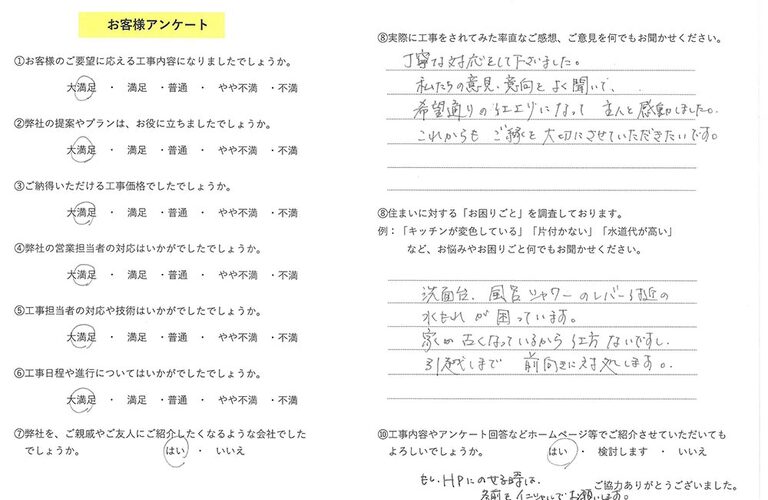 お客様アンケート
①お客様のご要望に応える工事内容になりましたでしょうか。
大満足 ・ 満足 ・普通 ・ やや不満 ・不満
②弊社の提案やプランは、お役に立ちましたでしょうか。
大満足 ・ 満足 ・普通 ・ やや不満 ・不満
③ご納得いただける工事価格でしたでしょうか。
大満足 ・ 満足 ・普通 ・ やや不満 ・不満
④弊社の営業担当者の対応はいかがでしたでしょうか。
大満足 ・ 満足 ・普通 ・ やや不満 ・不満
⑤工事担当者の対応や技術はいかがでしたでしょうか。
大満足 ・ 満足 ・普通 ・ やや不満 ・不満
⑥工事日程や進行についてはいかがでしたでしょうか。
大満足 ・ 満足 ・普通 ・ やや不満 ・不満
⑦弊社を、ご親戚やご友人にご紹介したくなるような会社でした
でしょうか。 はい ・ いいえ
⑧実際に工事をされてみた率直なご感想、ご意見を何でもお聞かせください。
丁寧な対応をして下さいました。
私たちの意見、意向をよく聞いて、
希望通りの仕上りになって 主人と感動しました。
これからも ご縁を大切にさせていただきたいです。
⑧住まいに対する「お困りごと」を調査しております。
例：「キッチンが変色している」「片付かない」「水道代が高い」
など、お悩みやお困りごと何でもお聞かせください。
洗面台、風呂シャワーのレバー付近の
水もれが困っています。
家が古くなっているから仕方ないですし、
引越しまで 前向きに対処します。
⑩工事内容やアンケート回答などホームページ等でご紹介させていただいても
よろしいでしょうか。 はい ・ 検討します ・ いいえ
もし、HPにのせる時は、
名前をイニシャルでお願いします。
ご協力ありがとうございました。